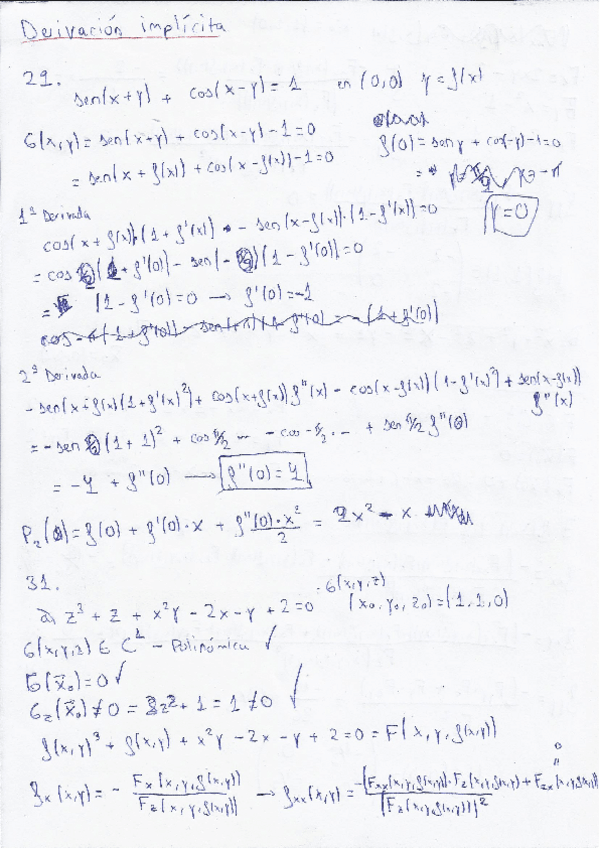 Derivación implícita
29.
sen(x+y) + cos(x-y) = 1 en (0,0) y = f(x)
G(x,y) = sen(x+y) + cos(x-y) - 1 = 0
= sen(x + f(x)) + cos(x - f(x)) - 1 = 0
f(0) = sen y + cos(-y) - 1 = 0
y = 0
1ª Derivada
cos(x + f(x))·(1 + f'(x)) - sen(x - f(x))·(1 - f'(x)) = 0
= cos (1 + f'(0)) - sen(- )(1 - f'(0)) = 0
= (1 - f'(0) = 0 → f'(0) = -1
2ª Derivada
- sen(x + f(x)(1 + f'(x)²) + cos(x + f(x)) f''(x) - cos(x - f(x))(1 - f'(x)²) + sen(x - f(x)) f''(x)
= - sen (1 + 1)² + cos π/2 ... - cos - π/2 ... + sen π/2 f''(0)
= -4 + f''(0) → f''(0) = 4
P₂(0) = f(0) + f'(0)·x + f''(0)·x²/2 = 2x² - x
31.
a) z³ + z + x²y - 2x - y + 2 = 0 · G(x,y,z) (x₀, y₀, z₀) = (1,1,0)
G(x,y,z) ∈ C¹ - Polinómica ✓
G(x̄₀) = 0 ✓
G_z(x̄₀) ≠ 0 = 3z² + 1 = 1 ≠ 0 ✓
f(x,y)³ + f(x,y) + x²y - 2x - y + 2 = 0 = F(x, y, f(x,y))
f_x(x,y) = - F_x(x, y, f(x,y)) / F_z(x, y, f(x,y)) → f_xx(x,y) = -(F_xx(x,y,f(x,y))·F_z(x,y,f(x,y)) + F_zx(x,y,f(x,y)) / (F_z(x,y,f(x,y)))²
0